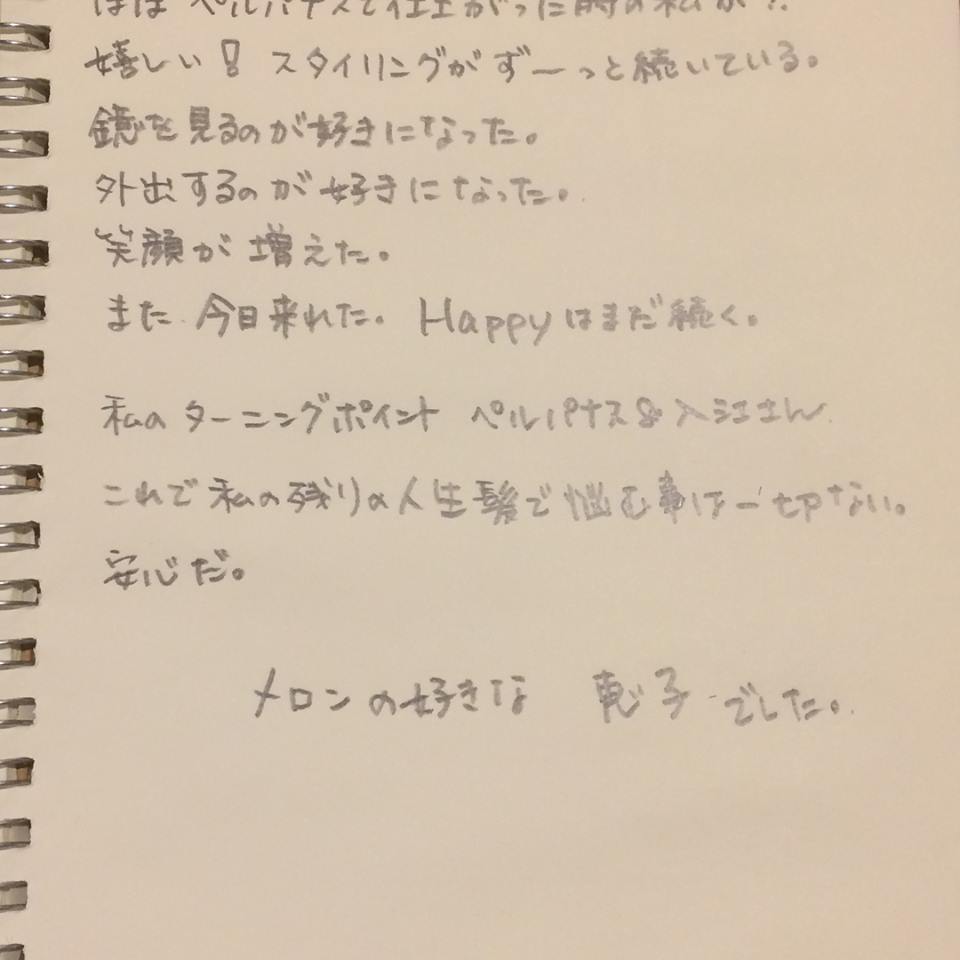 ほぼ ペルパナスで仕上がった時の私が!!
嬉しい! スタイリングがず〜っと続いている。
鏡を見るのが好きになった。
外出するのが好きになった。
笑顔が増えた。
また今日来れた。Happyはまだ続く。
私のターニングポイント ペルパナス&入江さん
これで私の残りの人生髪で悩む事は一切ない。
安心だ。
メロンの好きな 恵子でした。